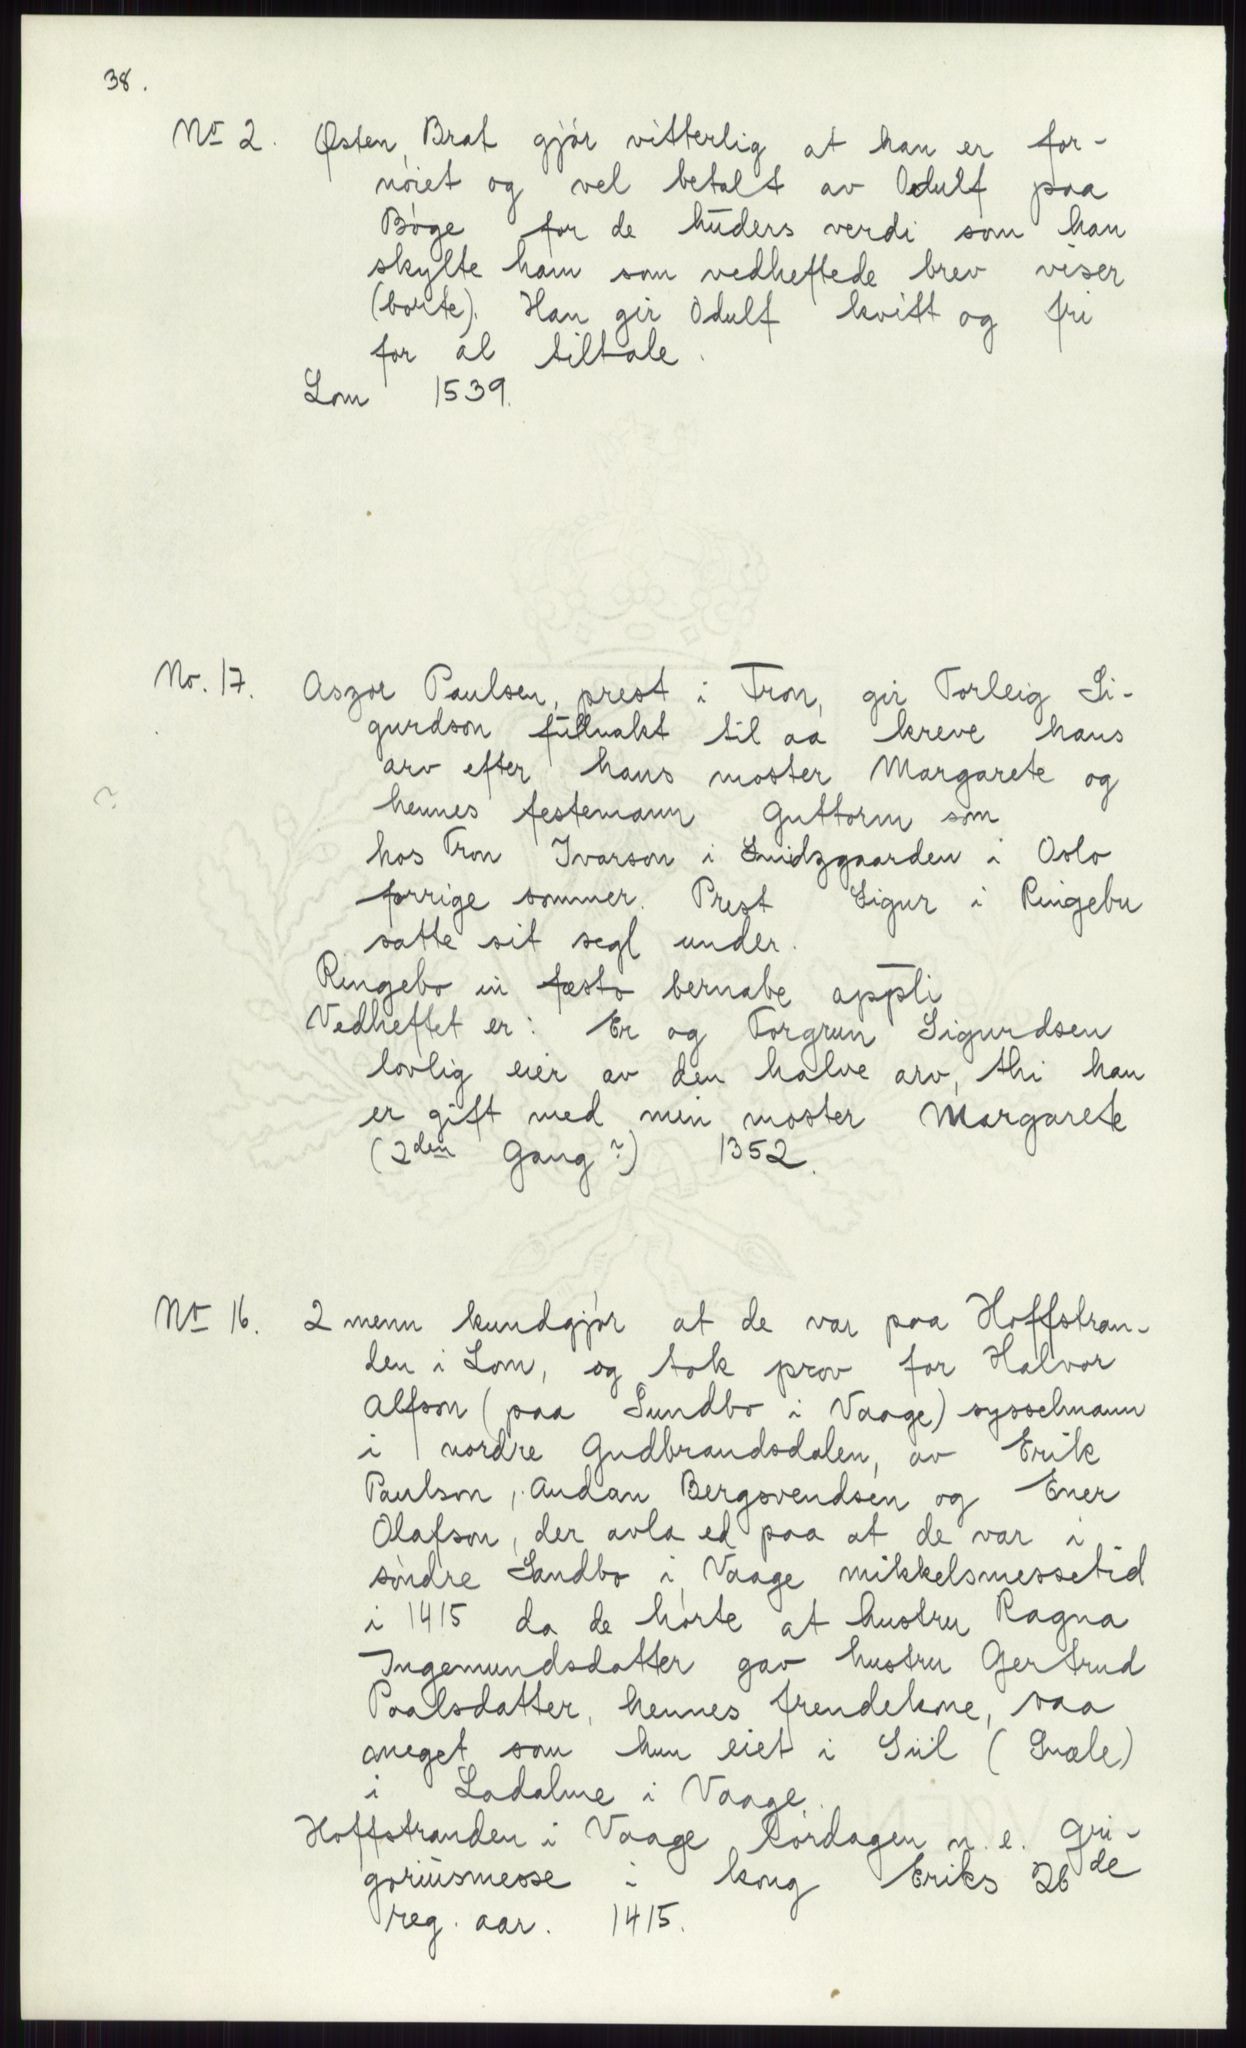 38.
No 2. Østen Brat gjør vitterlig at han er for-
nøiet og vel betalt av Odulf paa
Bøge for de hūders verdi som han
skylte ham som vedheftede brev viser
(borte). Han gir Odulf kvitt og fri
for al tiltale.
Lom 1539.
No. 17. Aszor Paulsen, prest i Fron, gir Torleig Si-
gurdson fūllmakt til aa kreve hans
arv efter hans moster Margarete og
? hennes festemann Guttorm som
hos Tron Ivarson i Smidzgaarden i Oslo
forrige sommer. Prest Sigur i Ringebu
satte sit segl under.
Ringebo in fæsto bernabe appli
Vedheftet er: Er og Torgrun Sigurdsen
lovlig eier av den halve arv, thi han
er gift med min moster Margarete
(2den Gang?) 1352.
No 16. 2 menn kundgjør at de var paa Hoffstran-
den i Lom, og tok prov for Halvor
Alfson (paa Sundbo i Vaage) sysselmann
i nordre Gudbrandsdalen, av Erik
Paulson, Audan Bergsvendsen og Ener
Olafson, der avla ed paa at de var i
søndre Sandbo i Vaage mikkelsmessetid
i 1415 da de hørte at hustru Ragna
Ingemundsdatter gav hustru Gertrud
Paalsdatter, hennes frendekone, saa
meget som hun eiet i (Snæle)
i Ladalme i Vaage.
Hoffstranden i Vaage lørdagen n. e. Gri-
goriūsmesse i kong Eriks 26de
reg. aar. 1415.